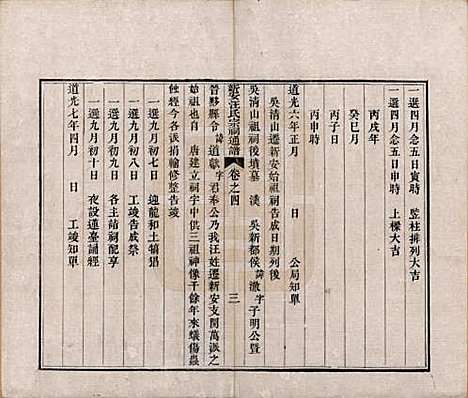 一選四月念五日寅時　豎柱排列大吉
一選四月念五日申時　上樑大吉
丙戌年
癸巳月
丙子日
丙申時
道光六年正月　日　公局知單
吳清山遷新安始祖祠告成日期列後
吳清山祖祠後墳墓　漢　吳新都侯諱澈字子明公暨
新安汪氏宗祠通譜　卷之四　三
晉黟縣令諱道獻字君奉公乃我汪姓遷新安支開萬派之
始祖也自　唐建立祠宇中供三祖神像千餘年來蟻傷蟲
蝕經今各派捐輸修整告竣
一選九月初七日　迎龍和土犒猖
一選九月初八日　工竣告成
一選九月初九日　各主詣祠配享
一選九月初十日　夜設蓮臺誦經
道光七年四月　日　工竣知單